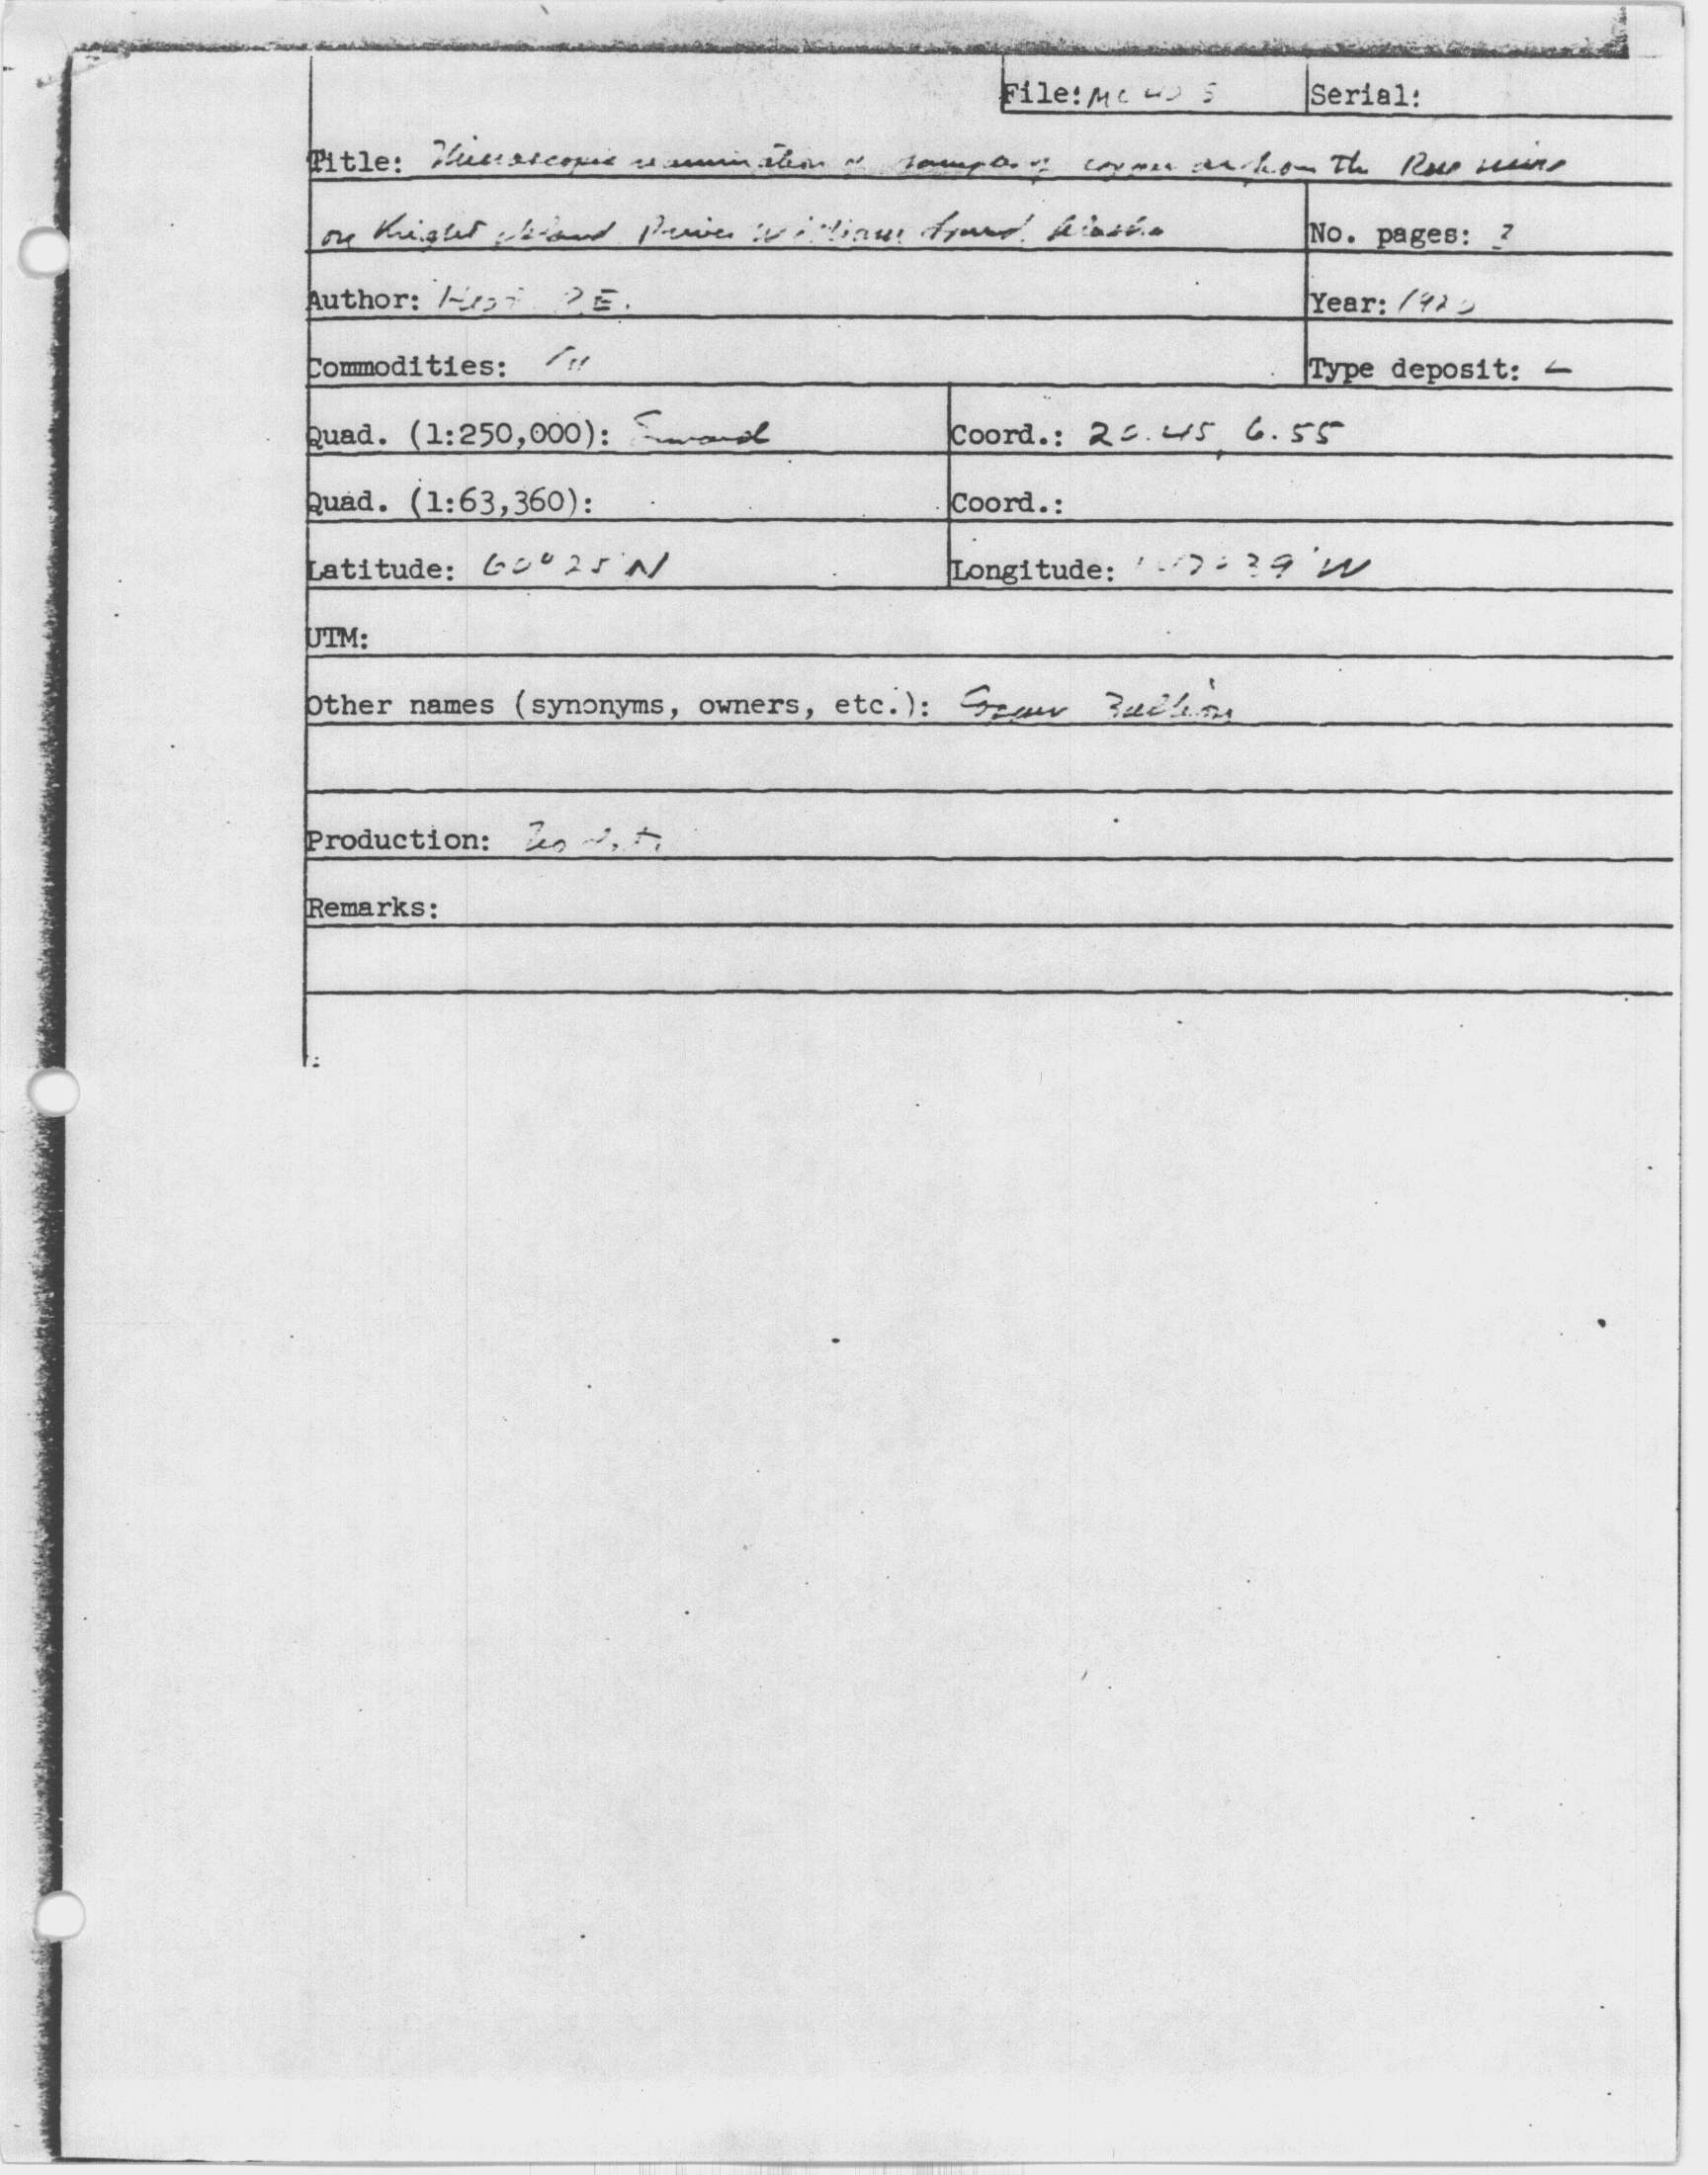 File: Serial:
Title: Microscopic examination of samples of copper ore from the Rua mine
on Knight Island Prince William Sound, Alaska No. pages:
Author: Year:
Commodities: Cu Type deposit: L
Quad. (1:250,000): Seward Coord.: 20.45, 6.55
Quad. (1:63,360): Coord.:
Latitude: 60° 25' N Longitude: 39' W
UTM:
Other names (synonyms, owners, etc.): Copper Bullion
Production: No data
Remarks: